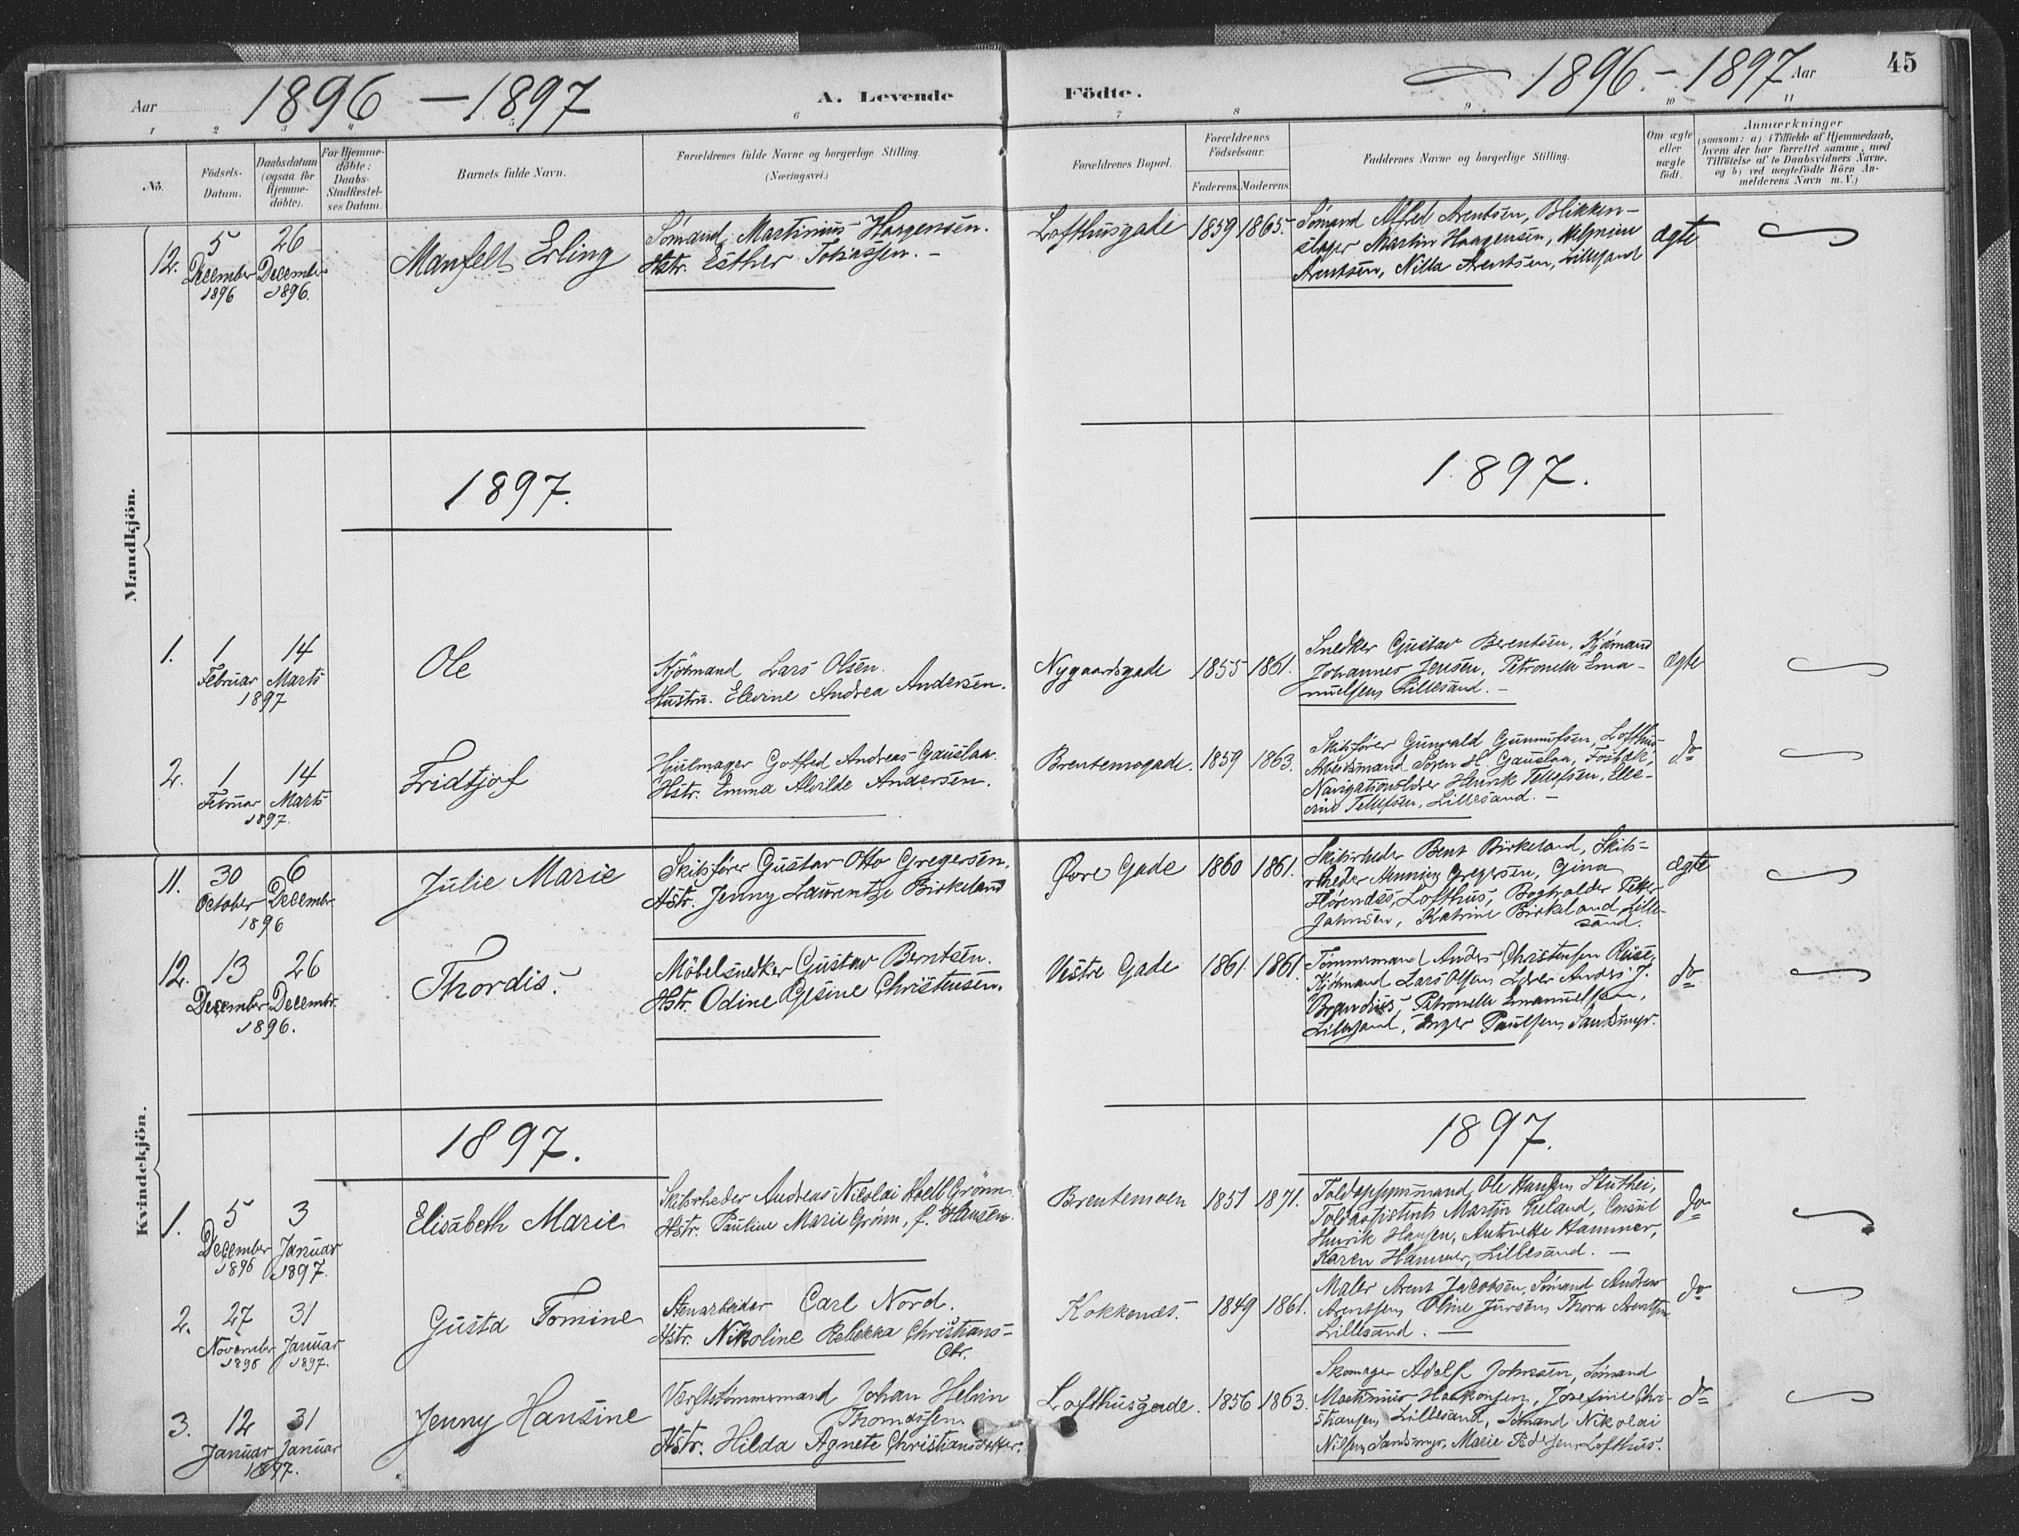 Aar 1896 — 1897 A. Levende Födte. 1896 - 1897 Aar 45
1 2 3 4 5 6 7 8 9 10 11
No.
Födsels-
Datum.
Daabsdatum
(ogsaa for
Hjemme-
døbte).
For Hjemme-
døbte:
Daabs-
Stadfæstel-
ses Datum.
Barnets fulde Navn.
Forældrenes fulde Navne og borgerlige Stilling.
(Næringsvei.)
Forældrenes Bopæl.
Forældrenes
Födselsaar.
Faderens. Moderens.
Faddernes Navne og borgerlige Stilling.
Om ægte
eller
uægte
født.
Anmærkninger
(saasom: a) i Tilfælde af Hjemmedaab,
hvem der har forrettet samme, med
Tilföielse af to Daabsvidners Navne,
og b) ved uægtefödte Börn An-
melderens Navn m. V.)
Mandkjön.
12.
5
December
1896
26
December
1896.
Manfelt Erling
Sömand Martinius Haagensen.
Hstr. Esther Tobiassen. —
Lofthusgade 1859 1865.
Sömand Alfred Arentsen, Blikken-
slager Martin Haagensen,
Arentsen, Nilla Arentsen, Lillesand
ægte
1897. 1897.
1.
1
Februar
14
Marts
1897
Ole
Kjörmand Lars Olsen.
Hustru. Elevine Andrea Andersen.
Nygaardsgade 1855 1861.
Snedker Gustav Berentsen, Kjörmand
Johannes Jensen, Petronelle Ema-
nuelsen, Lillesand. —
ægte
2.
1
Februar
14
Marts
1897.
Fridtjof
Hjulmager Gotfred Andreas Gauslaa.
Hstr. Emma Alvilde Andersen.
Brentemogade. 1859 1863.
Skibsfører Gunvald Gunnufsen, Lofthus
Arbeidsmand Søren H. Gauslaa, Fosbæk,
Navigationslærer Henrik Tellefsen,
Tellefsen, Lillesand. —
do
Kvindekjön.
11.
30
October
6
Decembr.
1896
Julie Marie
Skibsfører Gustav Otto Gregersen.
Hstr. Jenny Laurentze Birkeland
Øvre Gade 1860 1861.
Skibsrheder Bent Birkeland, Skibs-
rheder Gregersen, Gina
Lofthus, Boghalder Petter
Jahnsen, Katrine Birkeland, Lille-
sand.
ægte
12.
13
December
26
Decembr.
1896.
Thordis.
Möbelsnedker Gustav Berntsen.
Hstr. Odine Gesine Christensen.
Vestre Gade 1861. 1861.
Tömmermand Anders Christensen
Kjörmand Lars Olsen, Anders J.
Petronelle Emanuelsen,
Lillesand, Inger Paulsen, Sandsmyr.
do
1897. 1897.
1.
5
December
1896
3
Januar
1897.
Elisabeth Marie
Skibsrheder Andreas Nicolai Grönn
Hstr. Pauline Marie Grönn, f. Hansen.
Brentemoen 1851 1871.
Toldopsynsmand Ole Hansen
Toldassistent Martin Consul
Henrik Hansen, Antonette Hammer,
Karen Hammer, Lillesand. —
do
2.
27
November
1896
31
Januar
1897.
Gusta Tomine
Stenarbeider Carl Nord.
Hstr. Nikoline Rebekka Christians-
Dtr.
Kokkenes. 1849 1861.
Maler Arent Jacobsen, Sömand Andreas
Arentsen, Oline Thora Arentsen
Lillesand. —
do
3.
12
Januar
31
Januar
1897.
Jenny Hansine
Værftstømmermand Johan Helvin
Thomassen
Hstr. Hilda Agnete Christiansdatter.
Lofthusgade. 1856 1863.
Skomager Adolf Johnsen, Sömand
Martinius Haakonsen, Josefine Chri-
stiansen, Lillesand, Sömand Nikolai
Nilsen, Sandsmyr, Marie Pedersen, Lofthus.
do